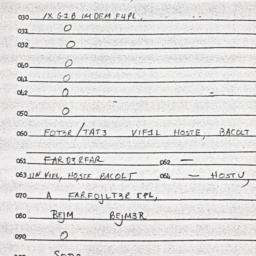 030. 1X GIB IM DEM F4PL,
031. O
032. O
040. O
041. O
042. O
050. O
060. FOT3R/TAT3 VIF1L HOSTE, BACOLT
061. FARD3RFAR 062. —
063 UN VIFL, HOSTE BACOLT 064. — HOSTU,
070. A FARFOJLT3R EPL,
080. BEJM BEJM3R
090. O